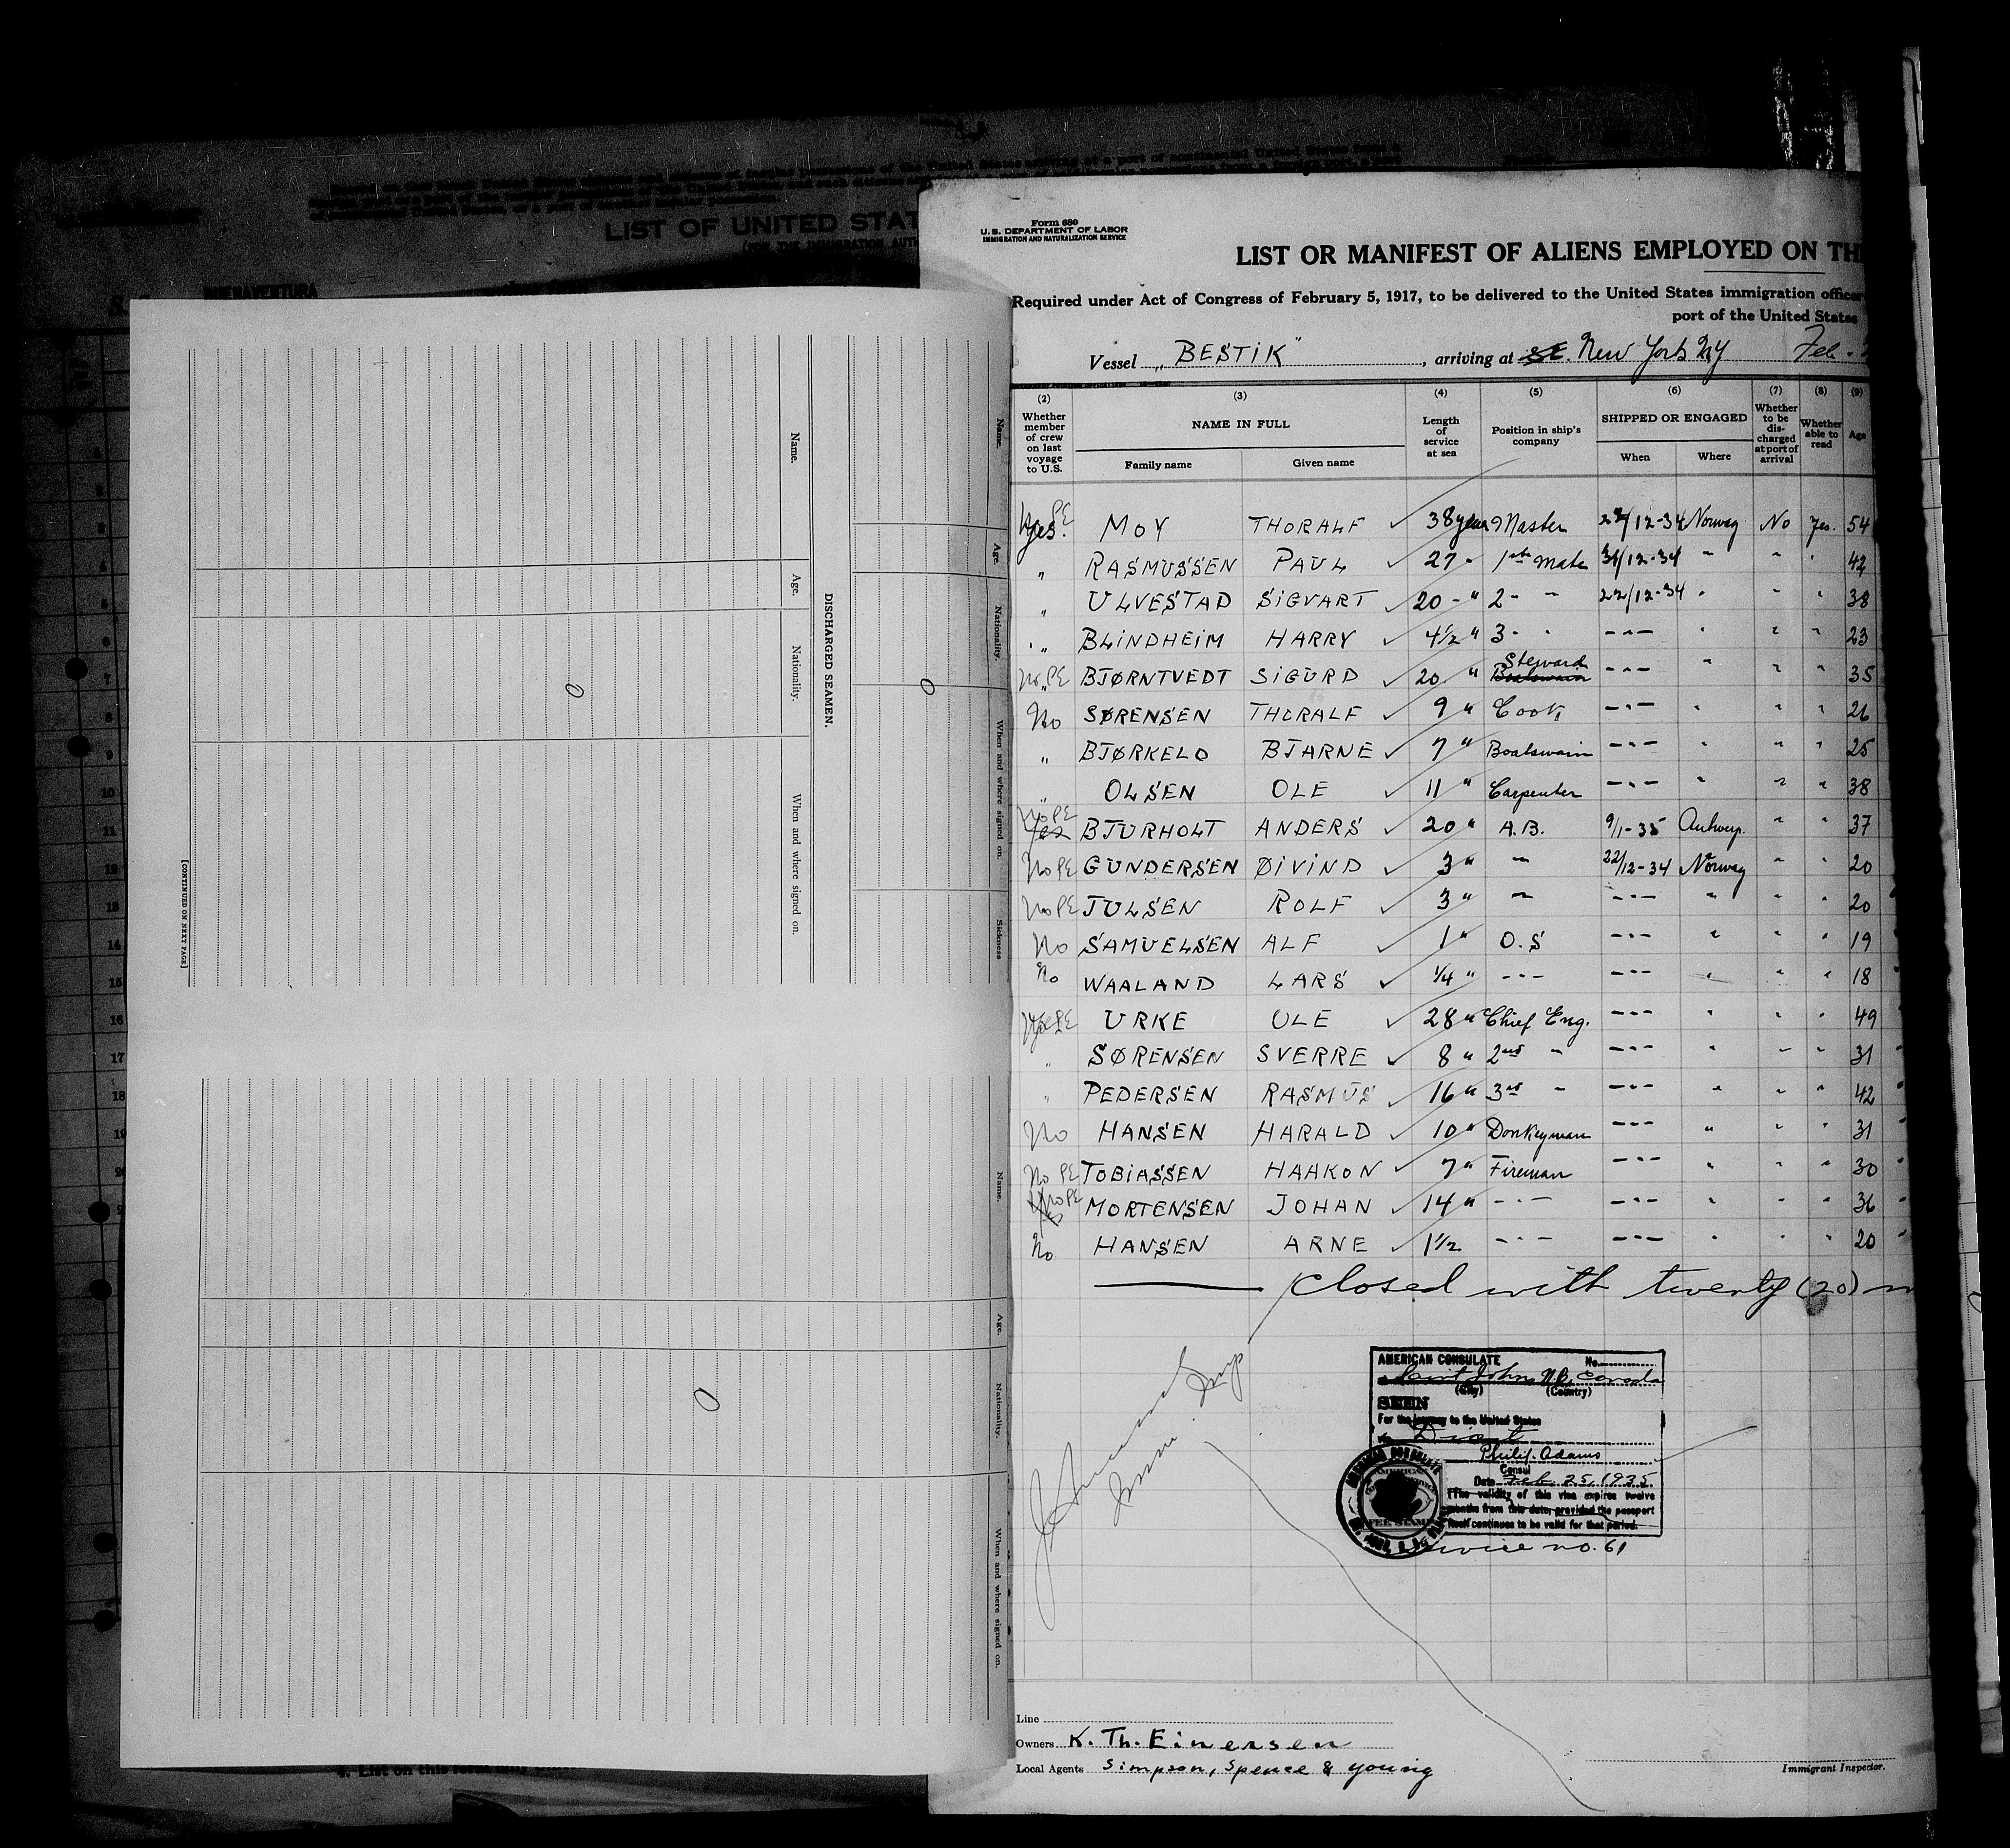 LIST OF UNITED STAT
BUENAVENTURA
Name.
Age.
Nationality.
When and where signed on.
DISCHARGED SEAMEN.
Name.
Age.
Nationality.
When and where signed on.
Sickness
[CONTINUED ON NEXT PAGE]
Name.
Age.
Nationality.
When and where signed on.
Form 680
U.S. DEPARTMENT OF LABOR
IMMIGRATION AND NATURALIZATION SERVICE
LIST OR MANIFEST OF ALIENS EMPLOYED ON TH
Required under Act of Congress of February 5, 1917, to be delivered to the United States immigration officer
port of the United States
Vessel „BESTIK" , arriving at New York NY Feb.
(2) (3) (4) (5) (6) (7) (8) (9)
Whether member of crew on last voyage to U.S. NAME IN FULL Length of service at sea Position in ship's company SHIPPED OR ENGAGED Whether to be discharged at port of arrival Whether able to read Age
Family name Given name When Where
Yes. MOY THORALF 38 years Master 22/12-34 Norway No Yes. 54
„ RASMUSSEN PAUL 27 " 1ste Mate 31/12-34 " " " 42
„ ULVESTAD SIGVART 20 - " 2 - - 22/12-34 " " " 38
„ BLINDHEIM HARRY 4½ " 3 - " -"- " " " 23
No PE BJØRNTVEDT SIGURD 20 " Steward Boatswain -"- " " " 35
No SØRENSEN THORALF 9 " Cook -"- " " " 26
„ BJØRKELO BJARNE 7 " Boatswain -"- " " " 25
„ OLSEN OLE 11 " Carpenter -"- " " " 38
No PE Yes BJURHOLT ANDERS 20 " A.B. 9/1-35 Antwerp. " " 37
No PE GUNDERSEN ØIVIND 3 " - 22/12-34 Norway " " 20
No PE JULSEN ROLF 3 " - -"- " " " 20
No SAMUELSEN ALF 1 " O.S -"- " " " 19
No WAALAND LARS ¼ " -"- -"- " " " 18
PE URKE OLE 28 " Chief Eng. -"- " " " 49
" SØRENSEN SVERRE 8 " 2nd " -"- " " " 31
" PEDERSEN RASMUS 16 " 3rd - -"- " " " 42
No HANSEN HARALD 10 " Donkeyman -"- " " " 31
No PE TOBIASSEN HAAKON 7 " Fireman -"- " " " 30
No PE MORTENSEN JOHAN 14 " -"- -"- " " " 36
No HANSEN ARNE 1½ -"- -"- " " " 20
Closed with twenty (20)
AMERICAN CONSULATE No.
Saint John, N.B. Canada
(City) (Country)
SEEN
For the journey to the United States
via Direct
Philip Adams
Consul
Date Feb. 25, 1935
(The validity of this visa expires twelve
months from this date, provided the passport
itself continues to be valid for that period.
Service no. 61
Line
Owners K. Th. Einersen
Local Agents Simpson, Spence & Young
Immigrant Inspector.